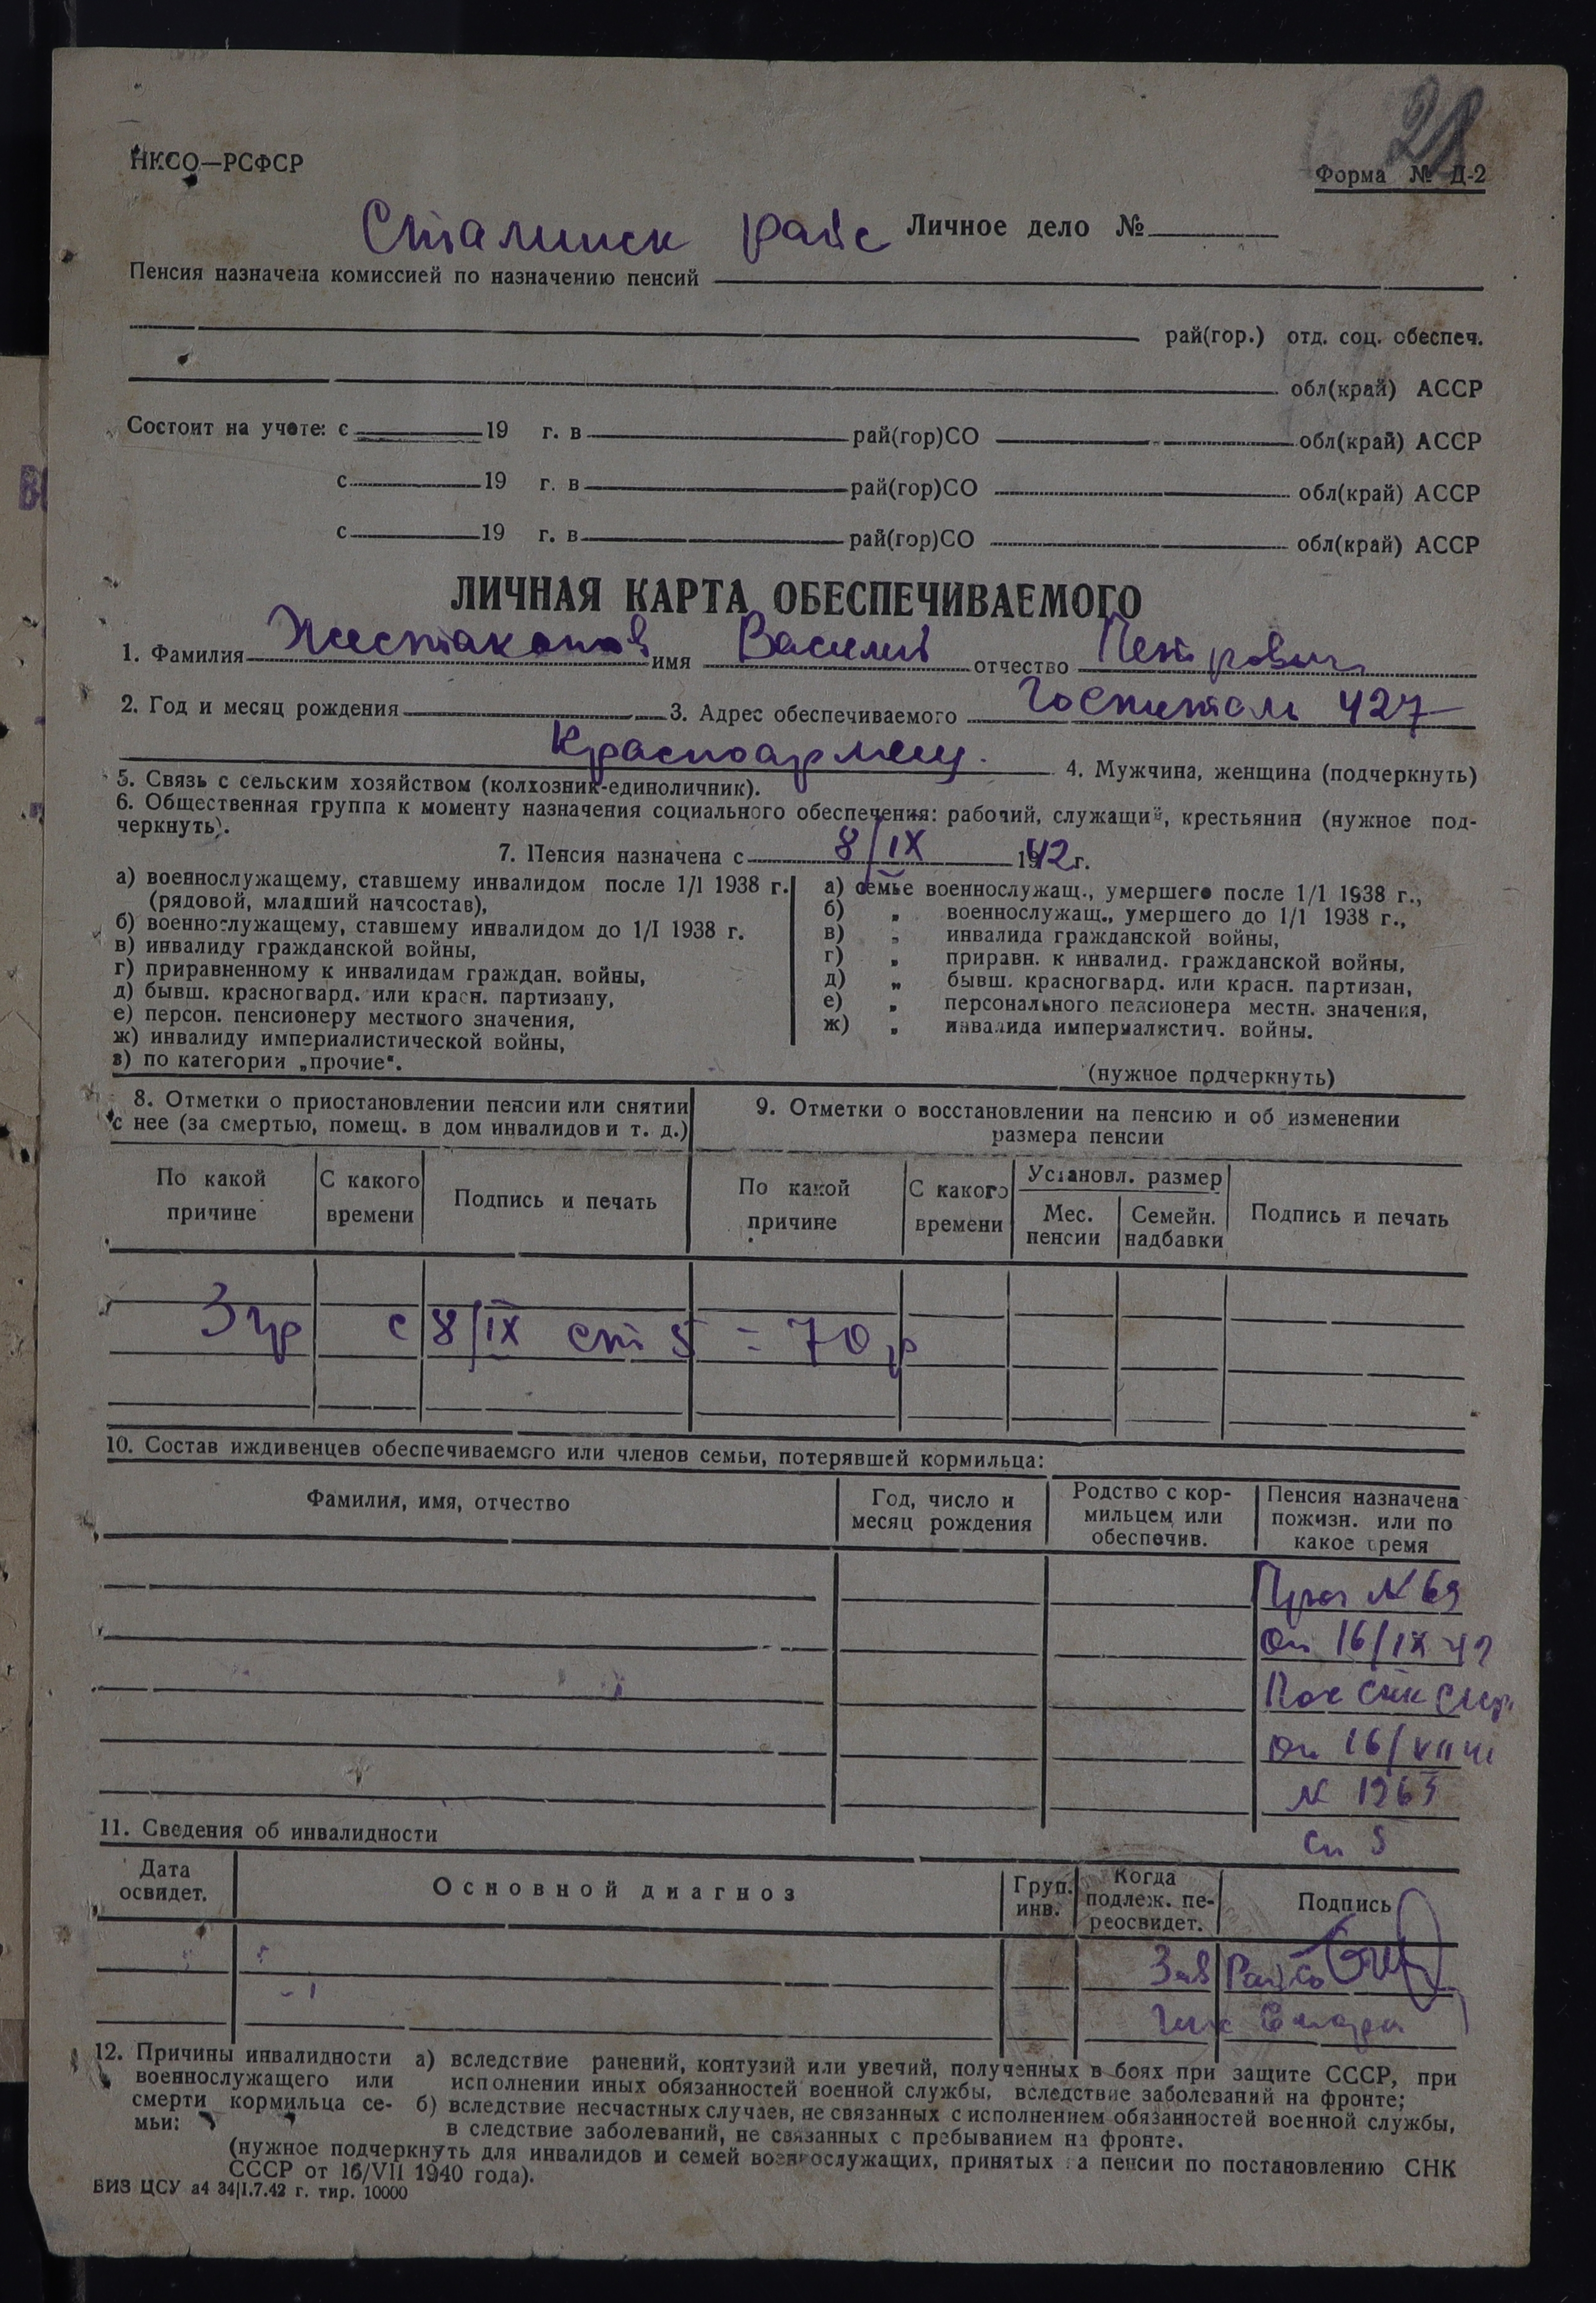 21
НКСО—РСФСР
Форма № Д-2
Сталинск райс Личное дело №
Пенсия назначена комиссией по назначению пенсий
рай(гор.) отд. соц. обеспеч.
обл(край) АССР
Состоит на учете: с 19 г. в рай(гор)СО обл(край) АССР
с 19 г. в рай(гор)СО обл(край) АССР
с 19 г. в рай(гор)СО обл(край) АССР
ЛИЧНАЯ КАРТА ОБЕСПЕЧИВАЕМОГО
1. Фамилия имя Василий отчество Петрович
2. Год и месяц рождения 3. Адрес обеспечиваемого Госпиталь 427
Красноармеец. 4. Мужчина, женщина (подчеркнуть)
5. Связь с сельским хозяйством (колхозник-единоличник).
6. Общественная группа к моменту назначения социального обеспечения: рабочий, служащий, крестьянин (нужное под-
черкнуть).
7. Пенсия назначена с 8/IX 1942 г.
а) военнослужащему, ставшему инвалидом после 1/I 1938 г.
(рядовой, младший начсостав),
б) военнослужащему, ставшему инвалидом до 1/I 1938 г.
в) инвалиду гражданской войны,
г) приравненному к инвалидам граждан. войны,
д) бывш. красногвард. или красн. партизану,
е) персон. пенсионеру местного значения,
ж) инвалиду империалистической войны,
з) по категории „прочие".
а) семье военнослужащ., умершего после 1/1 1938 г.,
б) „ военнослужащ., умершего до 1/1 1938 г.,
в) „ инвалида гражданской войны,
г) „ приравн. к инвалид. гражданской войны,
д) „ бывш. красногвард. или красн. партизан,
е) „ персонального пенсионера местн. значения,
ж) „ инвалида империалистич. войны.
(нужное подчеркнуть)
8. Отметки о приостановлении пенсии или снятии
с нее (за смертью, помещ. в дом инвалидов и т. д.)
9. Отметки о восстановлении на пенсию и об изменении
размера пенсии
По какой причине
С какого времени
Подпись и печать
По какой причине
С какого времени
Установл. размер
Мес. пенсии
Семейн. надбавки
Подпись и печать
3 гр с 8/IX ст 5 = 70 р
10. Состав иждивенцев обеспечиваемого или членов семьи, потерявшей кормильца:
Фамилия, имя, отчество
Год, число и месяц рождения
Родство с кор- мильцем или обеспечив.
Пенсия назначена пожизн. или по какое время
№ 69
от 16/IX 42
Пос СНК
от 16/VII
№ 1269
ст 5
11. Сведения об инвалидности
Дата освидет.
Основной диагноз
Груп. инв.
Когда подлеж. пе- реосвидет.
Подпись
Зав Райсо
12. Причины инвалидности военнослужащего или смерти кормильца се- мьи:
а) вследствие ранений, контузий или увечий, полученных в боях при защите СССР, при
исполнении иных обязанностей военной службы, вследствие заболеваний на фронте;
б) вследствие несчастных случаев, не связанных с исполнением обязанностей военной службы,
в следствие заболеваний, не связанных с пребыванием на фронте.
(нужное подчеркнуть для инвалидов и семей военнослужащих, принятых на пенсии по постановлению СНК
СССР от 16/VII 1940 года).
БИЗ ЦСУ а4 34|1.7.42 г. тир. 10000